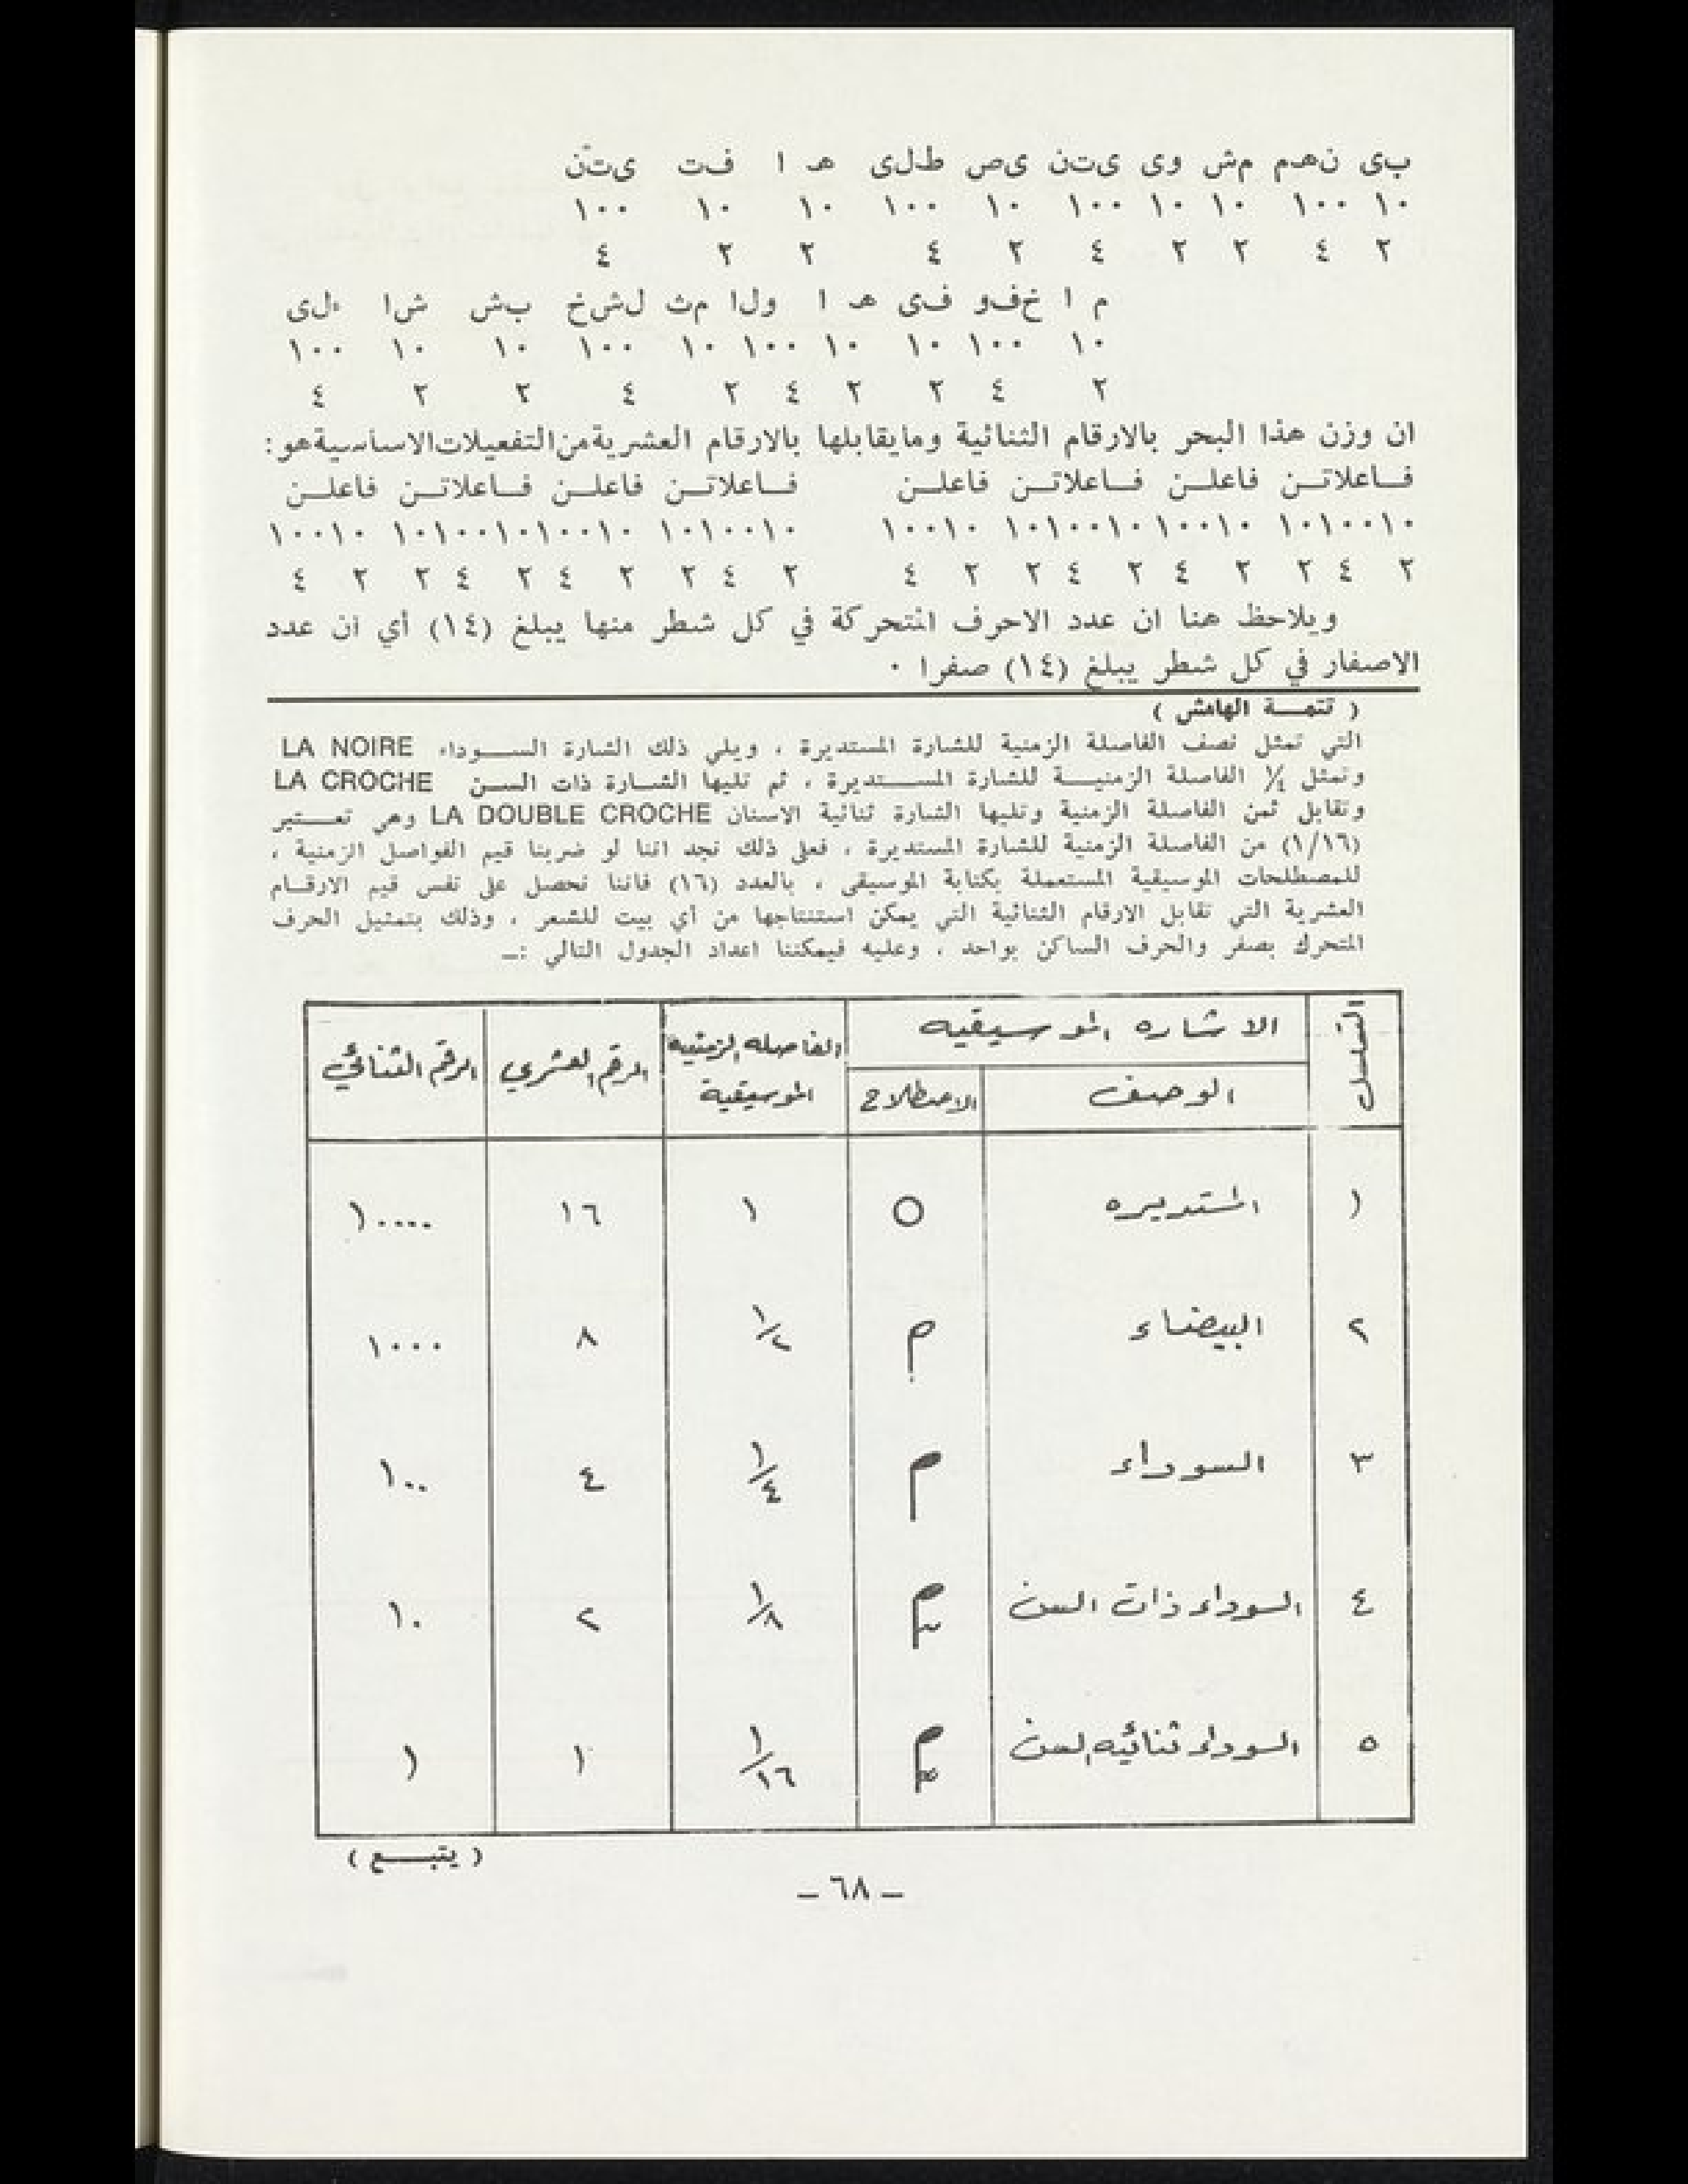 ب‌ى ن‌ه‌م م‌ش و‌ى ى‌ت‌ن ى‌ص ط‌ل‌ى ه ا ف‌ت ى‌ت‌ن
١٠ ١٠٠ ١٠ ١٠ ١٠٠ ١٠ ١٠٠ ١٠ ١٠ ١٠٠
٢ ٤ ٢ ٢ ٤ ٢ ٤ ٢ ٢ ٤
م ا خ‌ف‌و ف‌ى ه ا و‌ل‌ا م‌ث ل‌ش‌خ ب‌ش ش‌ا ء‌ل‌ى
١٠ ١٠٠ ١٠ ١٠ ١٠٠ ١٠ ١٠٠ ١٠ ١٠ ١٠٠
٢ ٤ ٢ ٢ ٤ ٢ ٤ ٢ ٢ ٤
ان وزن هذا البحر بالارقام الثنائية ومايقابلها بالارقام العشرية من التفعيلات الاساسية هو :
فـاعلاتـن فاعلـن فـاعلاتـن فاعلـن فـاعلاتـن فاعلـن فـاعلاتـن فاعلـن
١٠١٠٠١٠ ١٠٠١٠ ١٠١٠٠١٠ ١٠٠١٠ ١٠١٠٠١٠ ١٠٠١٠ ١٠١٠٠١٠ ١٠٠١٠
٢ ٤ ٢ ٢ ٤ ٢ ٤ ٢ ٢ ٤ ٢ ٤ ٢ ٢ ٤ ٢ ٤ ٢ ٢ ٤
ويلاحظ هنا ان عدد الاحرف المتحركة في كل شطر منها يبلغ (١٤) أي ان عدد
الاصفار في كل شطر يبلغ (١٤) صفرا ٠
( تتمــة الهامش )
التي تمثل نصف الفاصلة الزمنية للشارة المستديرة ، ويلي ذلك الشارة الســوداء LA NOIRE
وتمثل ¼ الفاصلة الزمنيــة للشارة المســتديرة ، ثم تليها الشــارة ذات الســن LA CROCHE
وتقابل ثمن الفاصلة الزمنية وتليها الشارة ثنائية الاسنان LA DOUBLE CROCHE وهي تعــتبر
(١/١٦) من الفاصلة الزمنية للشارة المستديرة ، فعلى ذلك نجد اننا لو ضربنا قيم الفواصل الزمنية ،
للمصطلحات الموسيقية المستعملة بكتابة الموسيقى ، بالعدد (١٦) فاننا نحصل على نفس قيم الارقــام
العشرية التي تقابل الارقام الثنائية التي يمكن استنتاجها من أي بيت للشعر ، وذلك بتمثيل الحرف
المتحرك بصفر والحرف الساكن بواحد ، وعليه فيمكننا اعداد الجدول التالي :ـ
التسلسل الاشاره الموسيقيه الفاصله الزمنيه الموسيقية الرقم العشري الرقم الثنائي
الوصف الاصطلاح
١ المستديره ١ ١٦ ١٠٠٠٠
٢ البيضاء ١/٢ ٨ ١٠٠٠
٣ السوداء ١/٤ ٤ ١٠٠
٤ السوداء ذات السن ١/٨ ٢ ١٠
٥ السوداء ثنائيه السن ١/١٦ ١ ١
( يتبــع )
ـ ٦٨ ـ